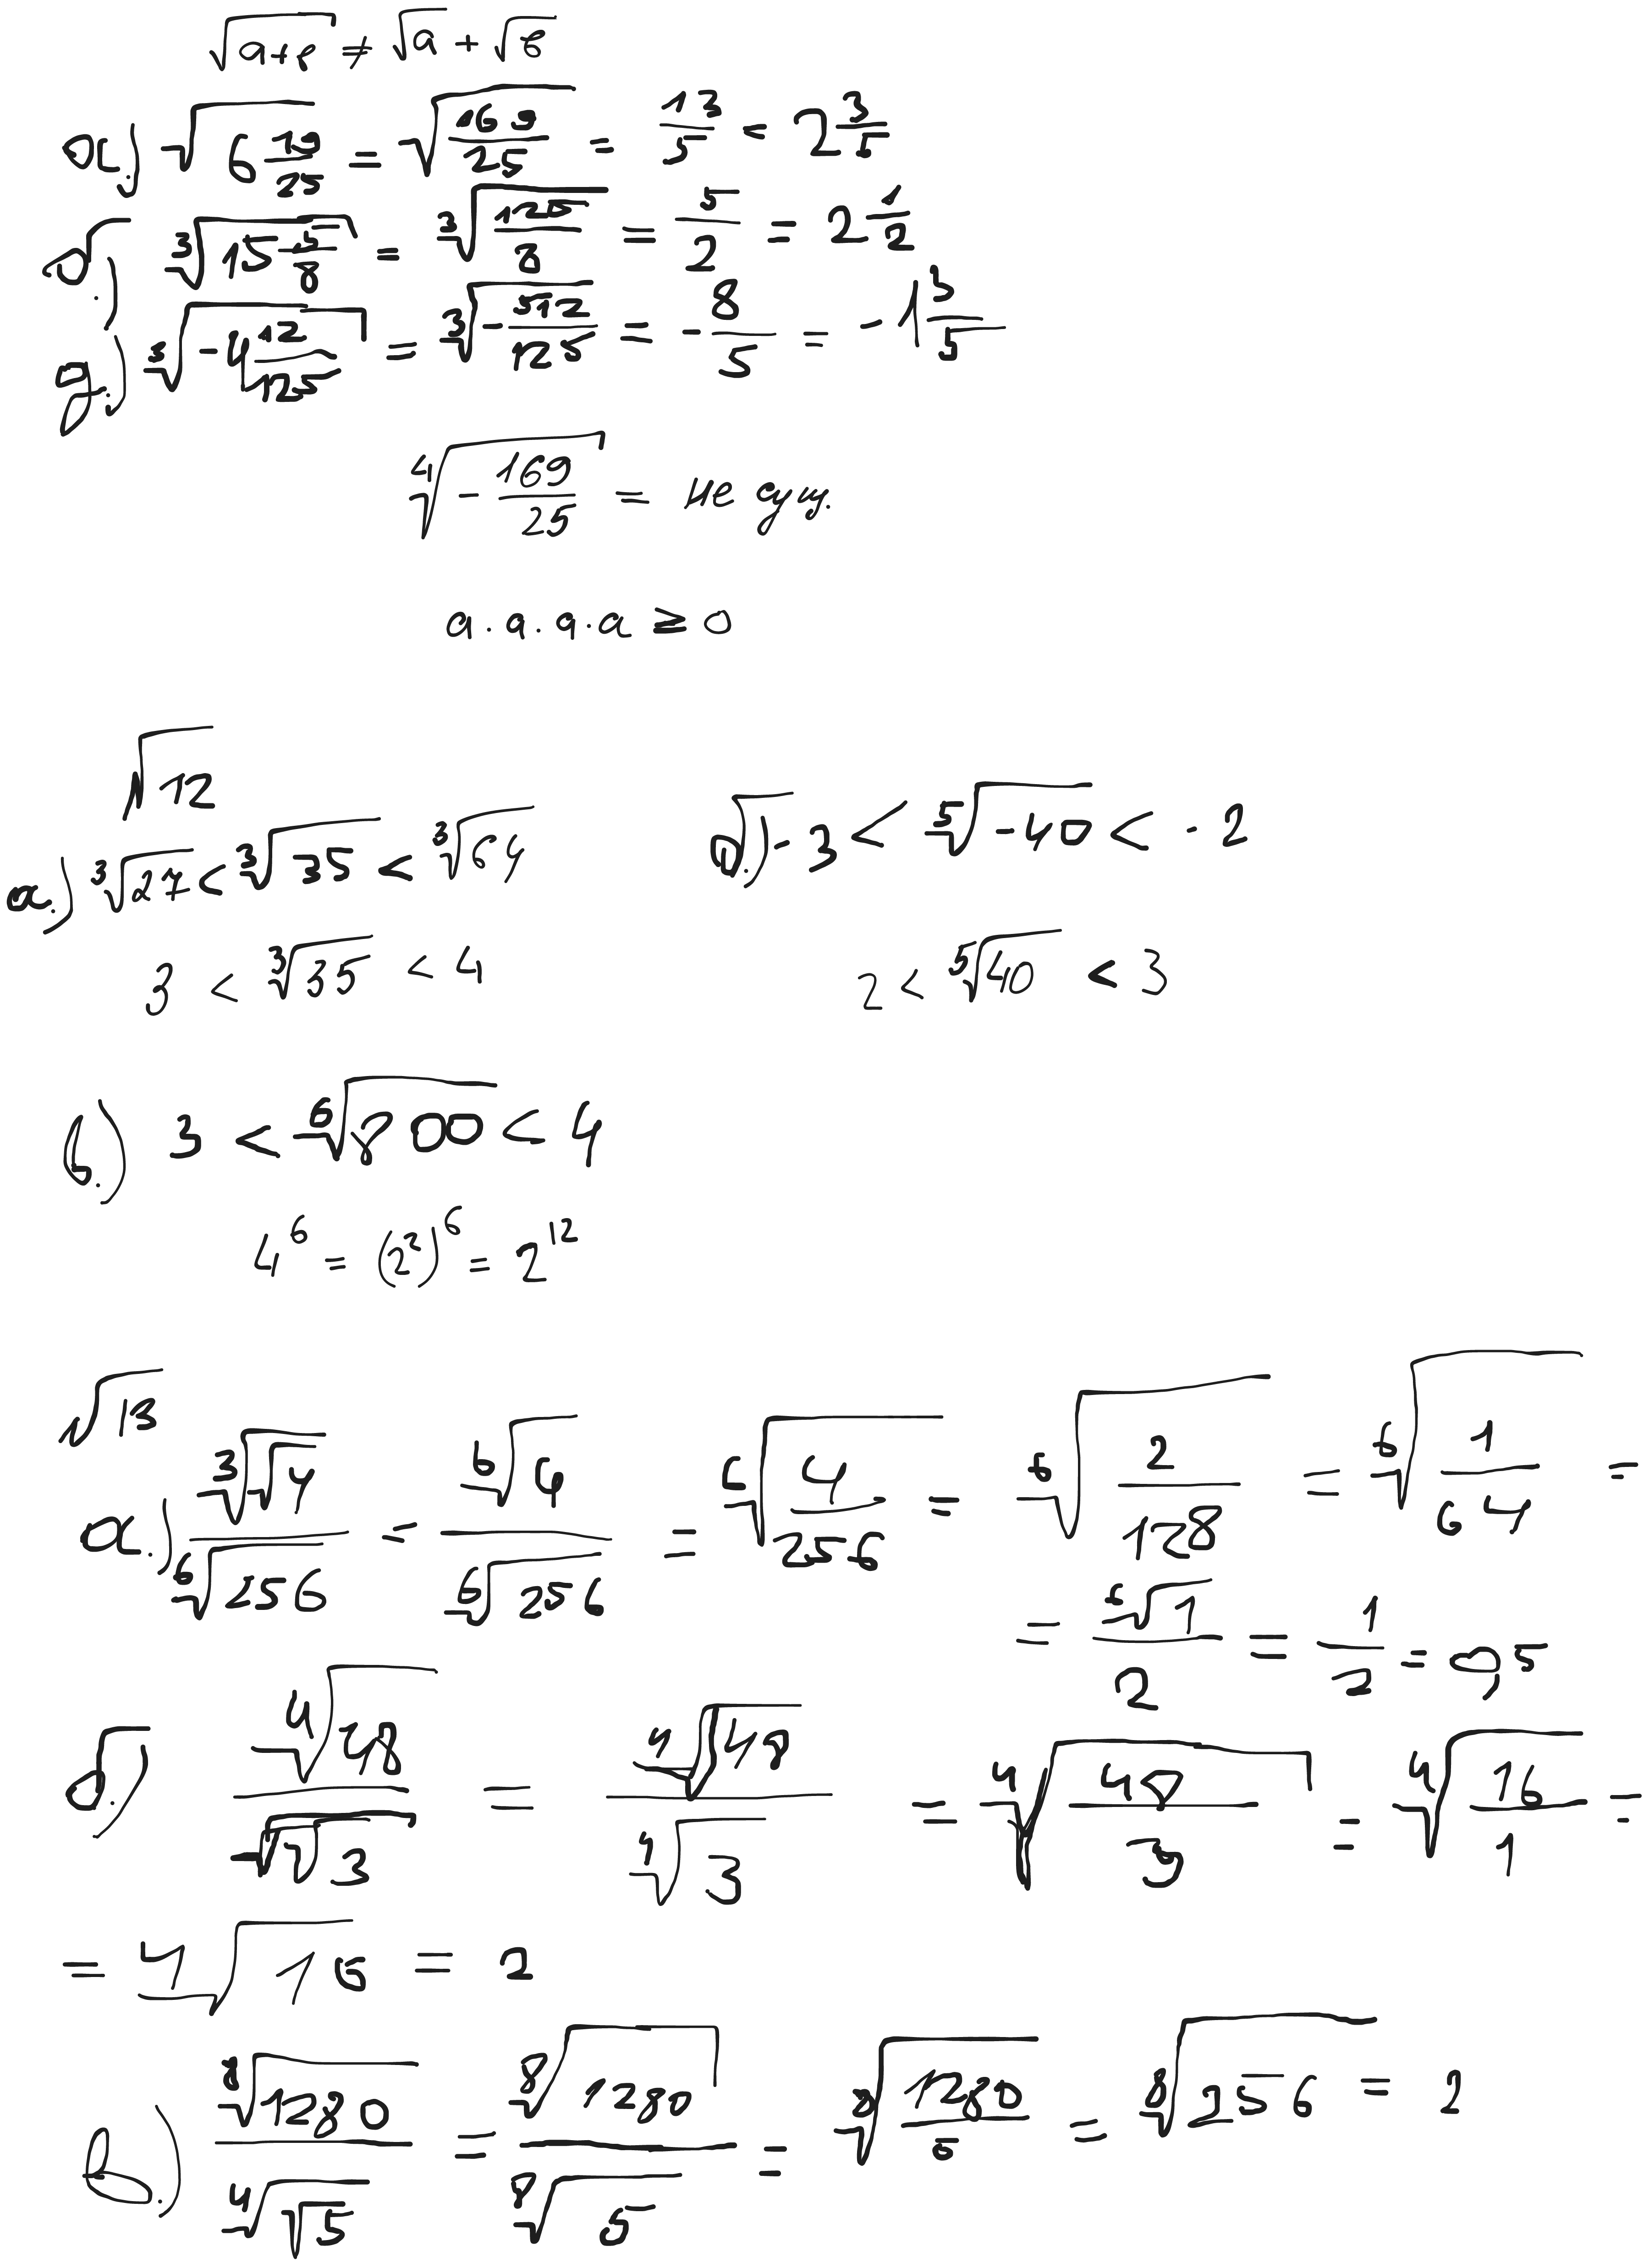 √(a+b) ≠ √a + √b
а.) √(6 19/25) = √(169/25) = 13/5 = 2 3/5
б.) ³√(15 5/8) = ³√(125/8) = 5/2 = 2 1/2
д.) ³√(-4 12/125) = ³√(-512/125) = -8/5 = -1 3/5
⁴√(-169/25) = не сущ.
a·a·a·a ≥ 0
√12
а.) ³√27 < ³√35 < ³√64
3 < ³√35 < 4
б.) -3 < ⁵√-40 < -2
2 < ⁵√40 < 3
в.) 3 < ⁶√800 < 4
4⁶ = (2²)⁶ = 2¹²
√13
а.) ³√√4 / ⁶√256 = ⁶√4 / ⁶√256 = ⁶√(4/256) = ⁶√(2/128) = ⁶√(1/64) =
= ⁶√1 / 2 = 1/2 = 0,5
б.) ⁴√48 / √√3 = ⁴√48 / ⁴√3 = ⁴√(48/3) = ⁴√(16/1) =
= ⁴√16 = 2
в.) ⁸√1280 / ⁴√√5 = ⁸√1280 / ⁸√5 = ⁸√(1280/5) = ⁸√256 = 2